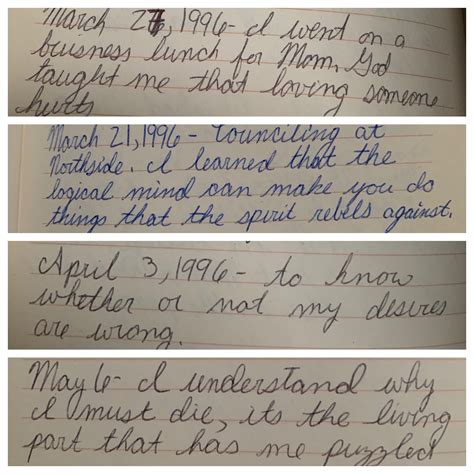 March 27, 1996- I went on a
buisness lunch for Mom. God
taught me that loving someone
hurts
March 21, 1996 - Counciling at
Northside. I learned that the
logical mind can make you do
things that the spirit rebels against.
April 3, 1996 - to know
whether or not my desires
are wrong.
May 6- I understand why
I must die, its the living
part that has me puzzled